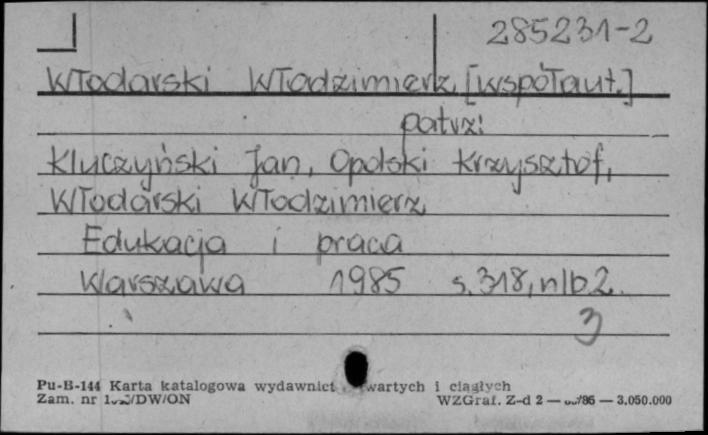 285231-2
Włodarski Włodzimierz [współaut.]
patrz:
Kluczyński Jan, Opolski Krzysztof,
Włodarski Włodzimierz
Edukacja i praca
Warszawa 1985 s. 318, nlb 2.
3
Pu-B-144 Karta katalogowa wydawnict wartych i ciągłych
Zam. nr /DW/ON WZGraf. Z-d 2 — /86 — 3.050.000